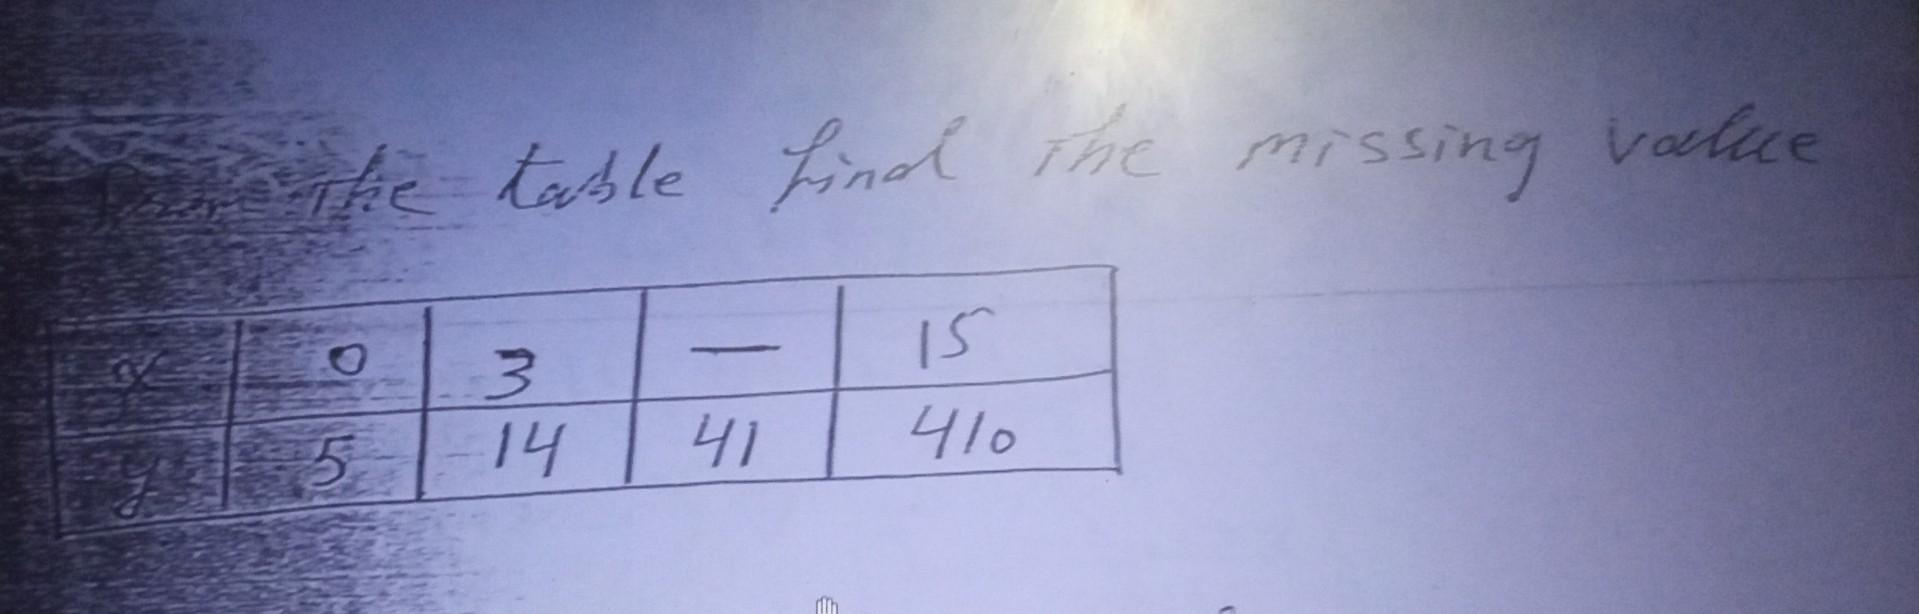 From the table find the missing value
x 0 3 — 15
y 5 14 41 410